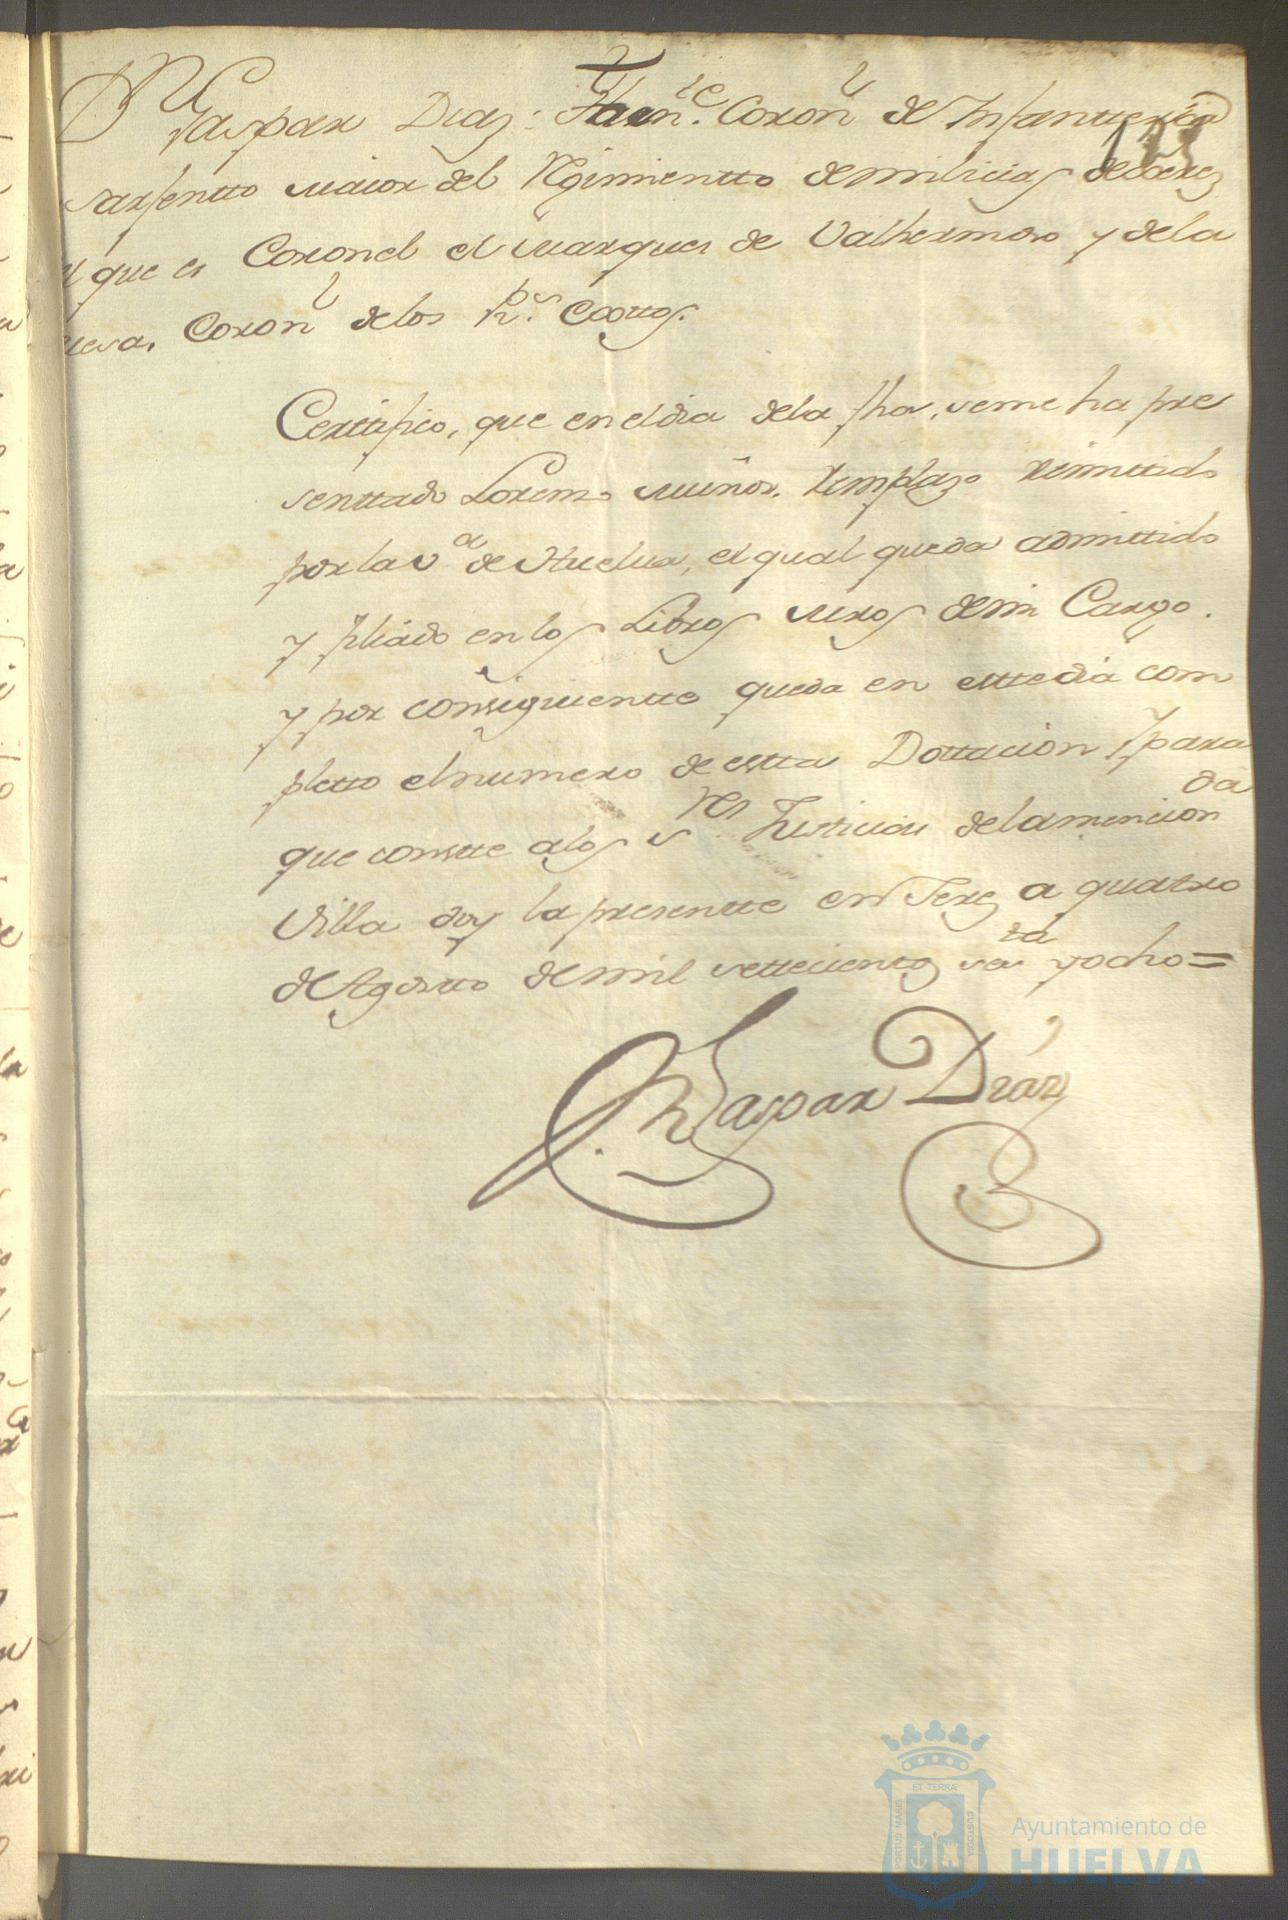 Dn Gaspar Diaz: Thente. Coronl de Infanteria
sarjentto maior del Rgimientto de milicias de Xerez
el que es Coronel el Marques de Valhermoso y dela
Coronl de los Rs. Exttos.
Certtifico, que en el dia dela fha, se me ha pre
senttado Lorenzo Muños. Remplazo Remittido
por la va de Huelua, el qual queda admittido
y filiado en los Libros Mros de mi Cargo.
y por consiguientte queda en estte dia com
pletto el numero de estta Dottacion Y para
que constte a los Sres Justicias dela mencionda
Villa doy la presentte en Xerez a quattro
de Agostto de mil settecientos sesta y ocho =
Dn Gaspar Diaz
ET TERRÆ
PORTUS MARIS
CUSTODIA
Ayuntamiento de
HUELVA